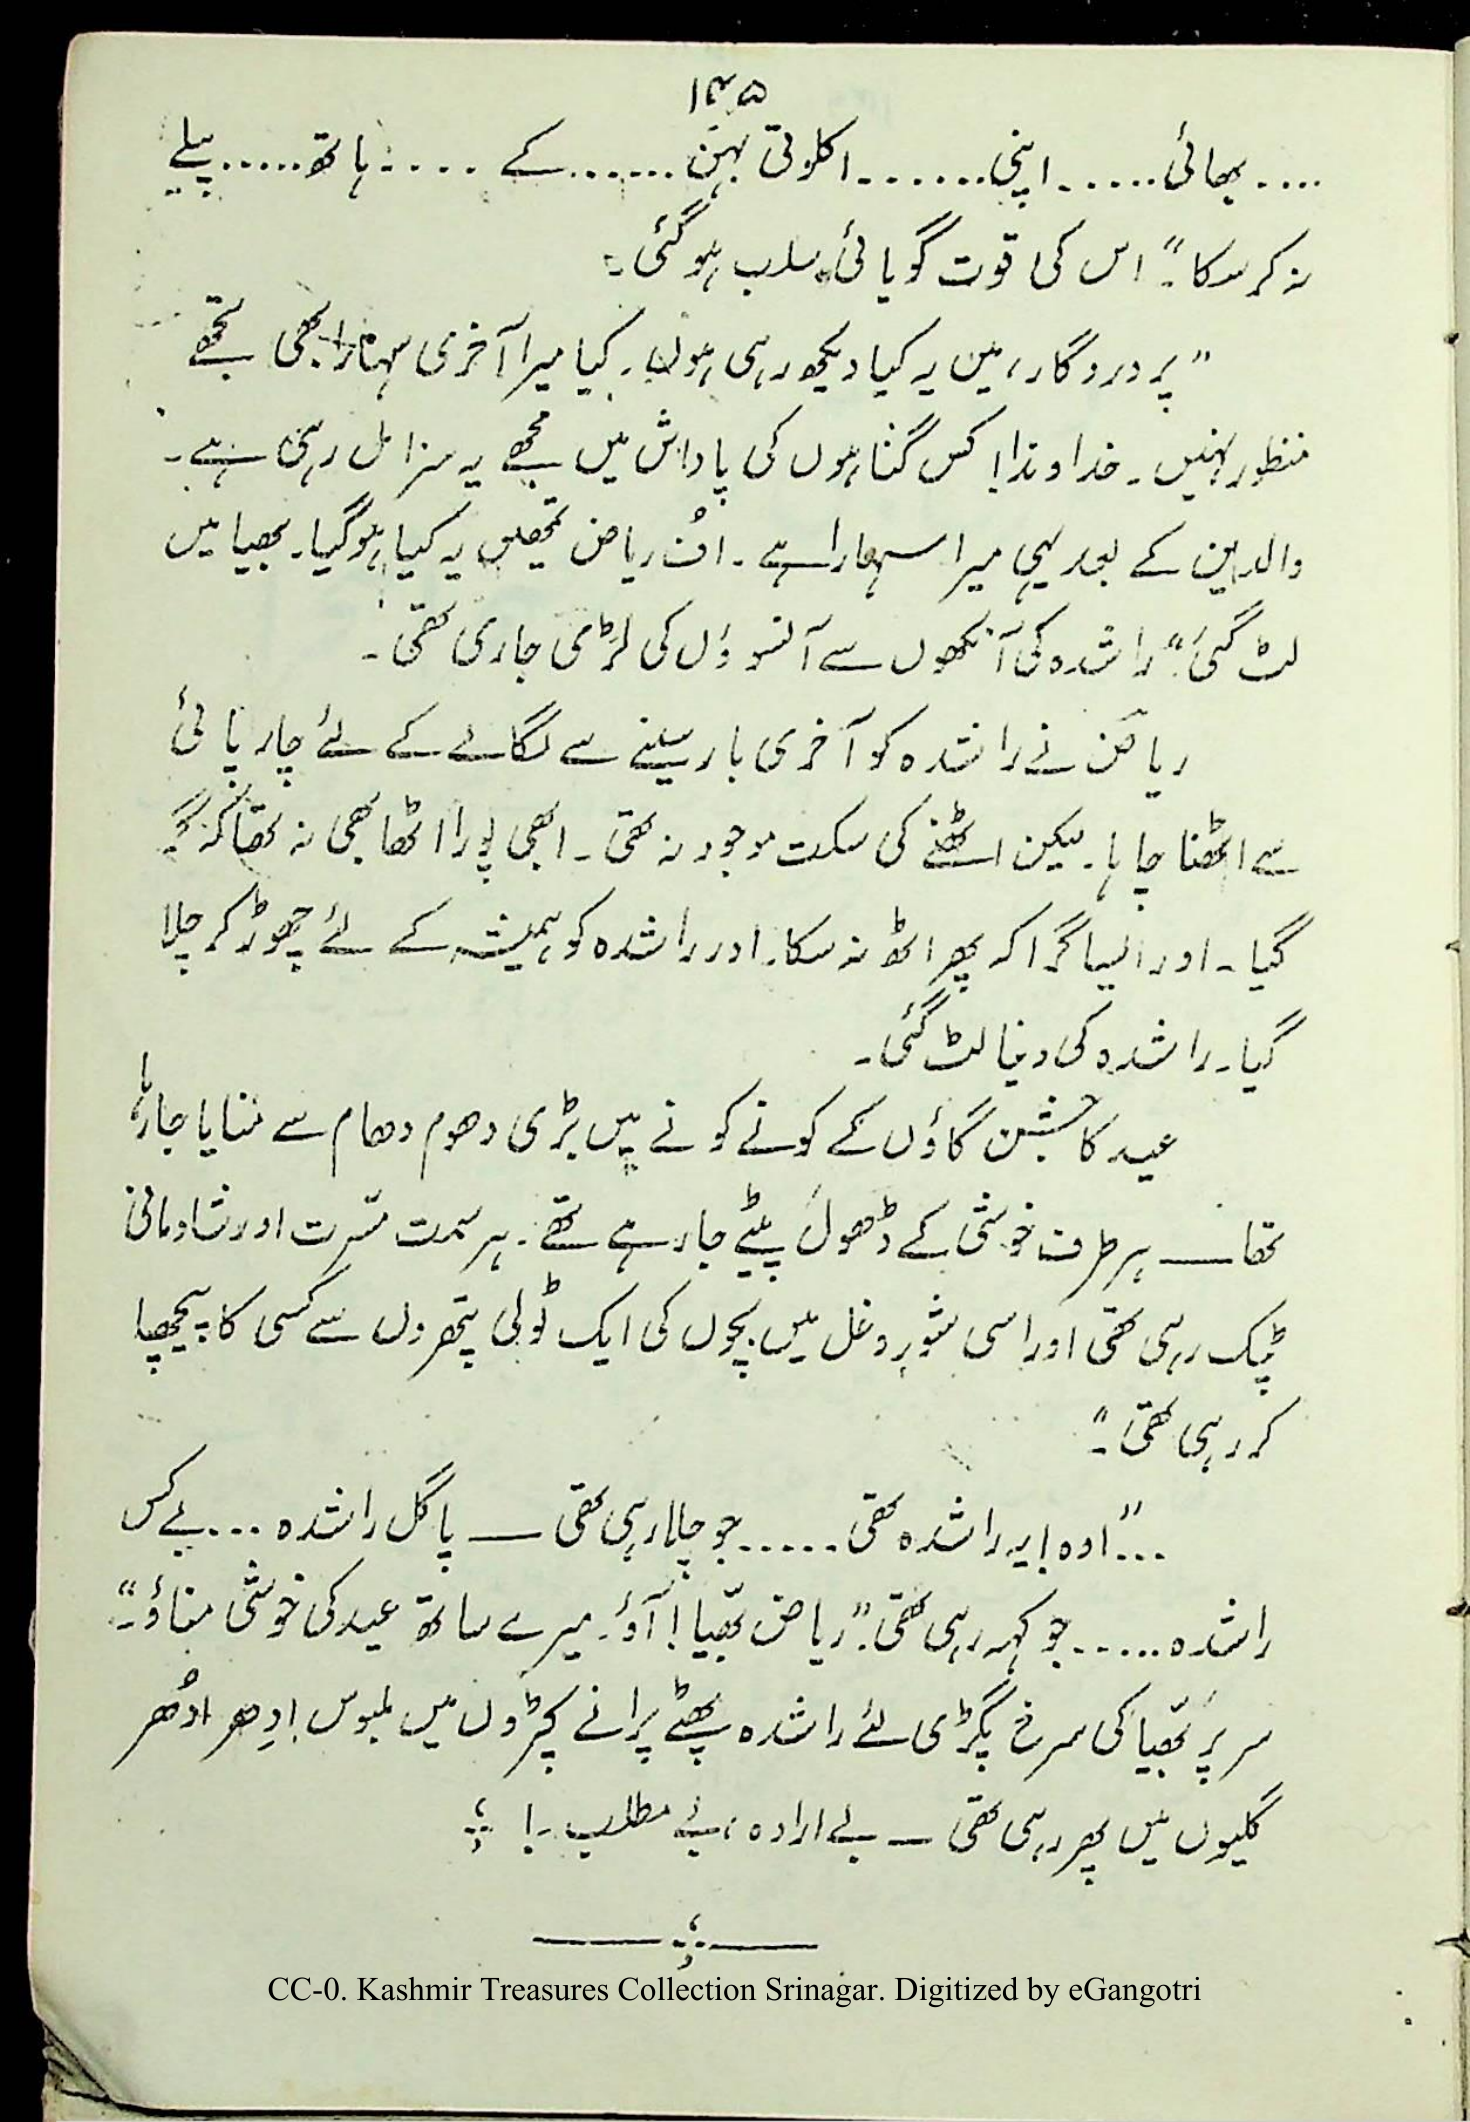 ۱۴۵
.... بھائی...... اپنی....... اکلوتی بہن.......کے ....ہاتھ.....پیلے
نہ کر سکا"۔ اس کی قوت گویائی سلب ہو گئی۔
"پروردگار، میں یہ کیا دیکھ رہی ہوں۔ کیا میرا آخری سہارا بھی تجھے
منظور نہیں۔ خداوندا! کس گناہوں کی پاداش میں مجھے یہ سزا مل رہی ہے۔
والدین کے بعد یہی میرا سہارا ہے۔ اُف ریاض تمھیں یہ کیا ہو گیا۔ بھیا میں
لٹ گئی"۔ راشدہ کی آنکھوں سے آنسوؤں کی لڑی جاری تھی۔
ریاض نے راشدہ کو آخری بار سینے سے لگانے کے لئے چارپائی
سے اٹھنا چاہا۔ لیکن اٹھنے کی سکت موجود نہ تھی۔ ابھی پورا اٹھا بھی نہ تھا کہ گر
گیا۔ اور ایسا گرا کہ پھر اٹھ نہ سکا۔ اور راشدہ کو ہمیشہ کے لئے چھوڑ کر چلا
گیا۔ راشدہ کی دنیا لٹ گئی۔
عید کا جشن گاؤں کے کونے کونے میں بڑی دھوم دھام سے منایا جا رہا
تھا—— ہر طرف خوشی کے ڈھول پیٹے جا رہے تھے۔ ہر سمت مسّرت اور شادمانی
ٹپک رہی تھی اور اسی شور و غل میں بچوں کی ایک ٹولی پتھروں سے کسی کا پیچھا
کر رہی تھی۔"
..."اوہ! یہ راشدہ تھی .....جو چلا رہی تھی —— پاگل راشدہ ...بے کس
راشدہ.....جو کہہ رہی تھی۔"ریاض بھّیا! آؤ۔ میرے ساتھ عید کی خوشی مناؤ۔"
سر پر بھّیا کی سرخ پگڑی لئے راشدہ پھٹے پرانے کپڑوں میں ملبوس اِدھر اُدھر
گلیوں میں پھر رہی تھی — بے ارادہ، بے مطلب۔!
CC-0. Kashmir Treasures Collection Srinagar. Digitized by eGangotri